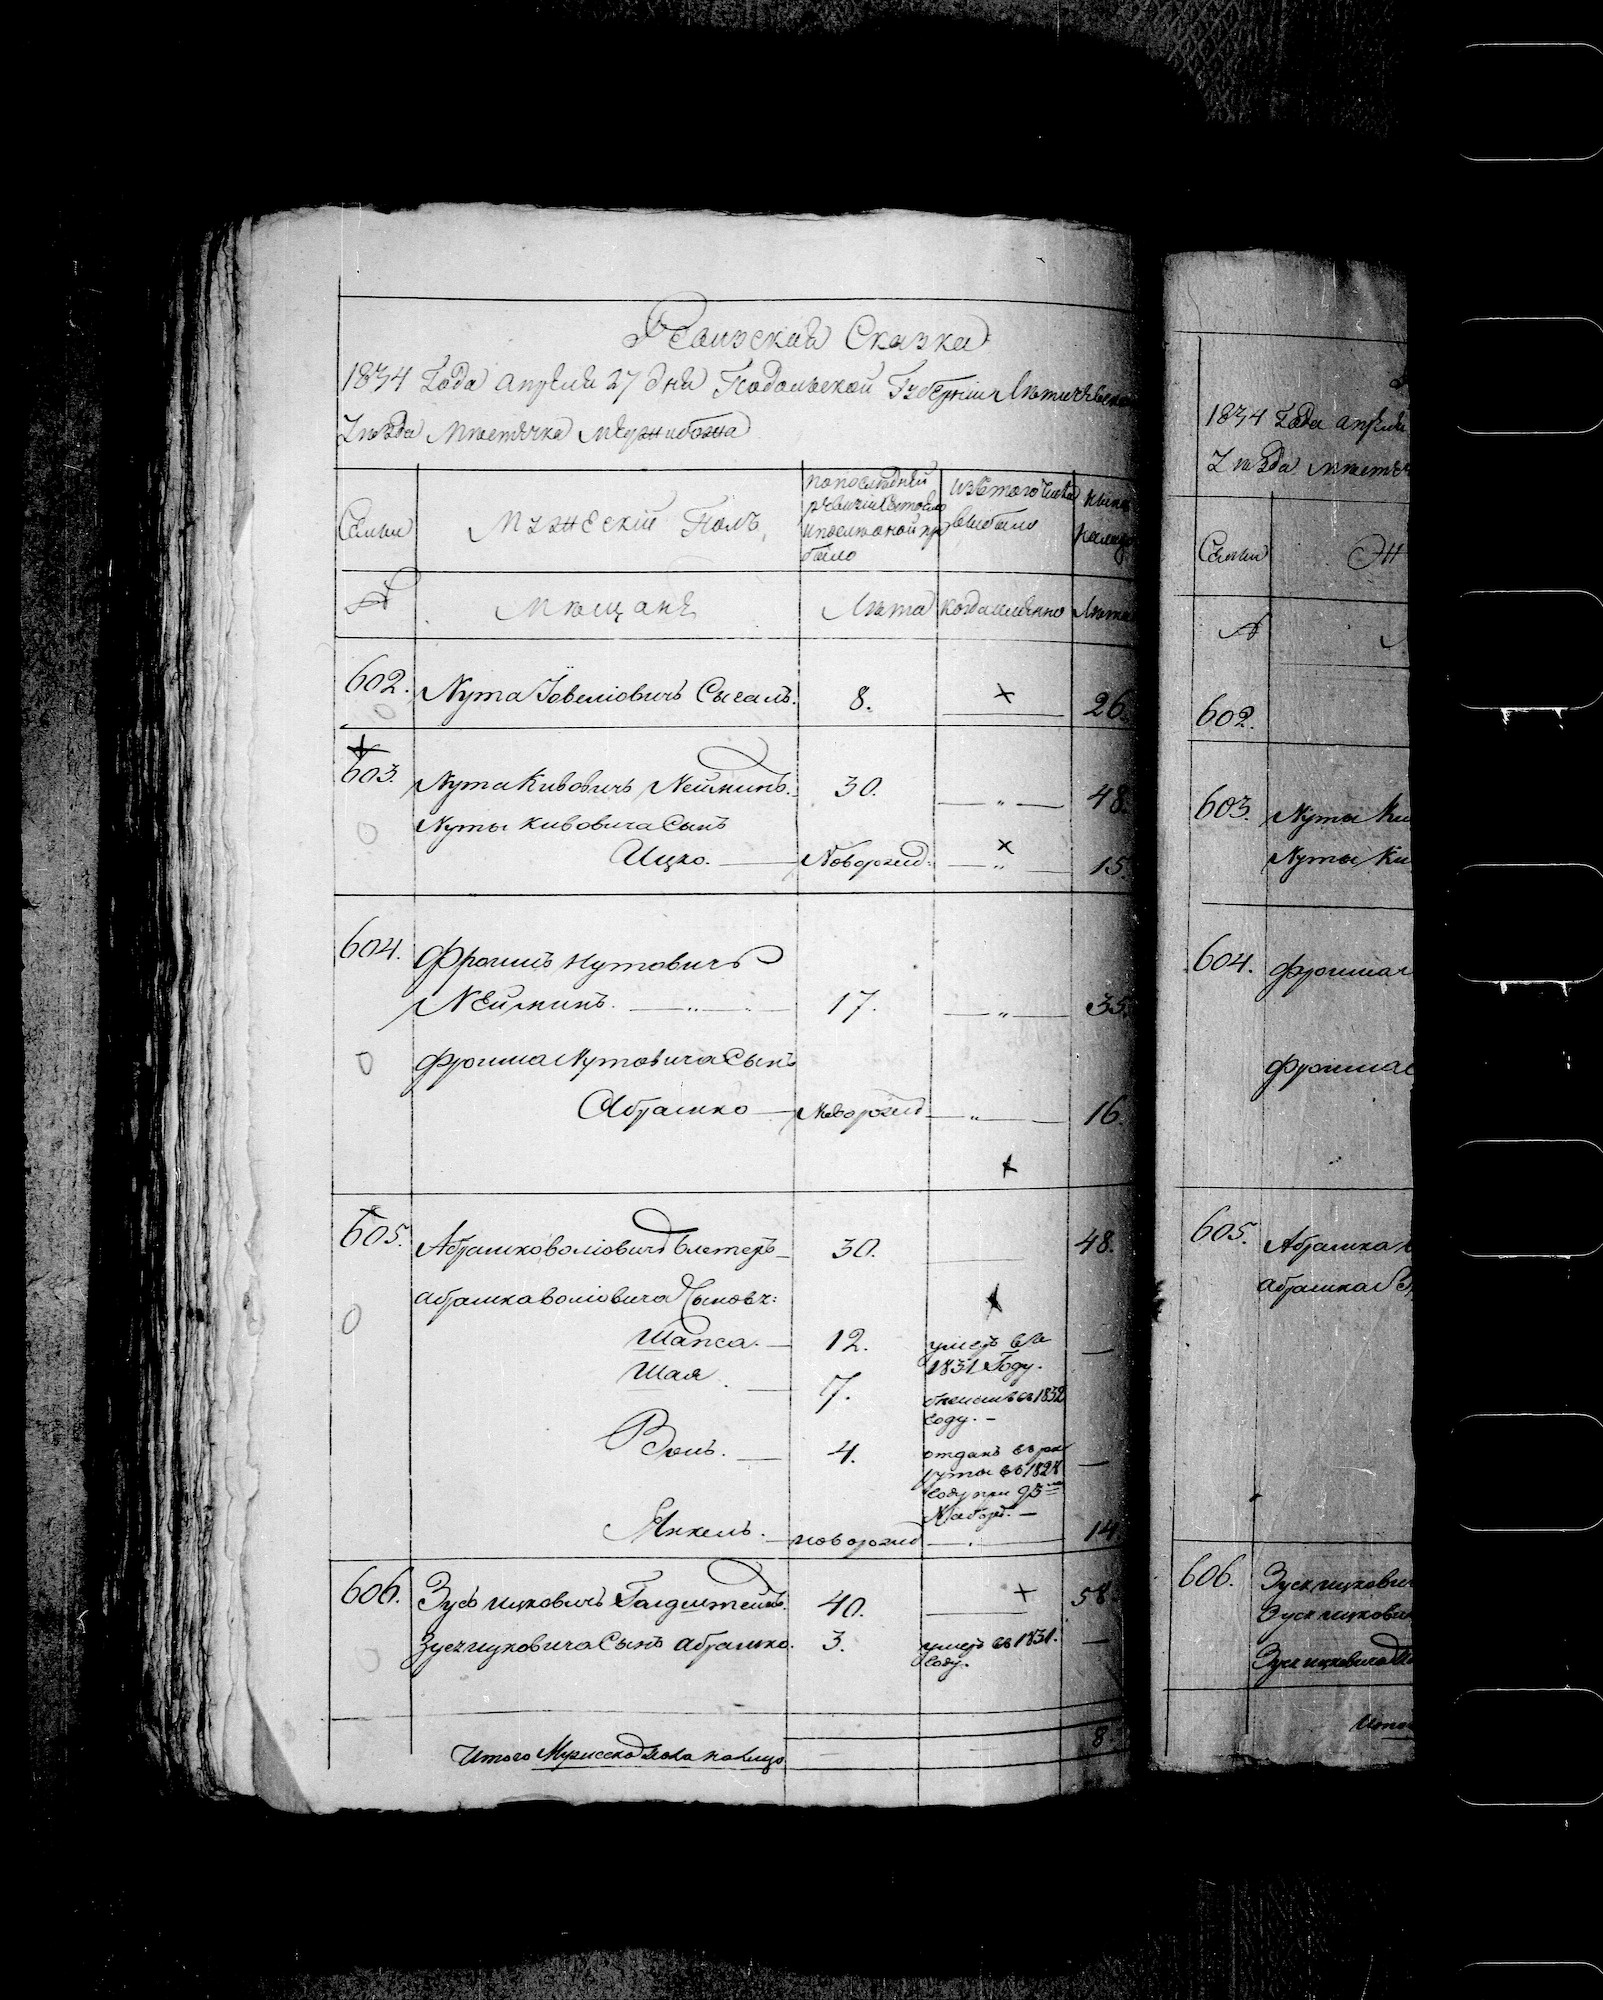 Ревизская Сказка
1834 Года апреля 27 дня Подольской Губернии Летичевского
Уезда Местечка Меджибожа
Семьи
Мужеский Полъ,
по последней ревизии состояло и после оной прибыло
изъ того числа выбыло
ныне налицо
№
Мещане
Лета
когда именно
Лета
602. Нута Іовеліовичъ Сыгалъ. 8. × 26.
603. Нута Кивовичъ Нейминъ. 30. — „ — 48.
Нуты Кивовича Сынъ
Ицко. — Новорожд: — „ — × 15.
604. Фроимъ Нутовичъ
Неймин. — „ — 17. — „ — 35.
Фроима Нутовича Сынъ
Абрамко — Новорожд — „ — 16.
×
605. Абрамко Воліовичъ 30. 48.
Абрамка Воліовича Сыновъя:
Шапса. — 12. умеръ въ
1831 Году. —
Шая. — 7. въ 1832
году. —
Воль. — 4. отданъ въ рек
руты въ 1828
году при 93мъ
Наборе. —
Янкель. — новорожд — . — 14
606. Зусь Ицковичъ Голдштейнъ. 40. × 58.
Зуся Ицковича Сынъ Абрамко. 3. умеръ въ 1831.
году. —
Итого Мужеска пола на лицо. 8
1834 Года апреля
Уезда местеч
Семьи
№
602.
603. Нуты Ки
Нуты Ки
604. Фроима
Фроима
605. Абрамка
Абрамка
606. Зуся Ицкович
Зуся Ицкович
Зуся Ицковича
Итог